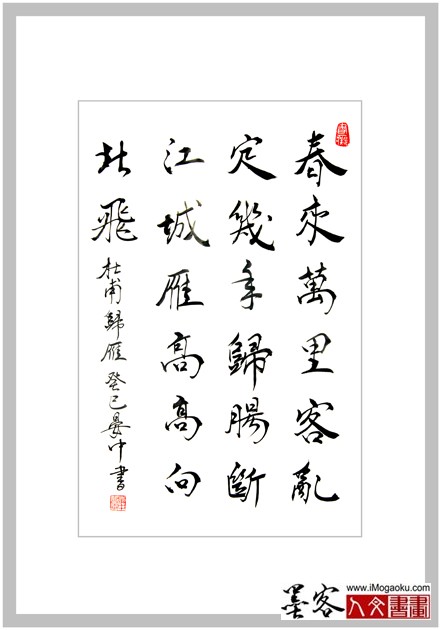 春來萬里客亂
定幾年歸腸斷
江城雁高高向
北飛
杜甫歸雁癸巳晏中書
墨客
www.iMogaoku.com
人文書畫